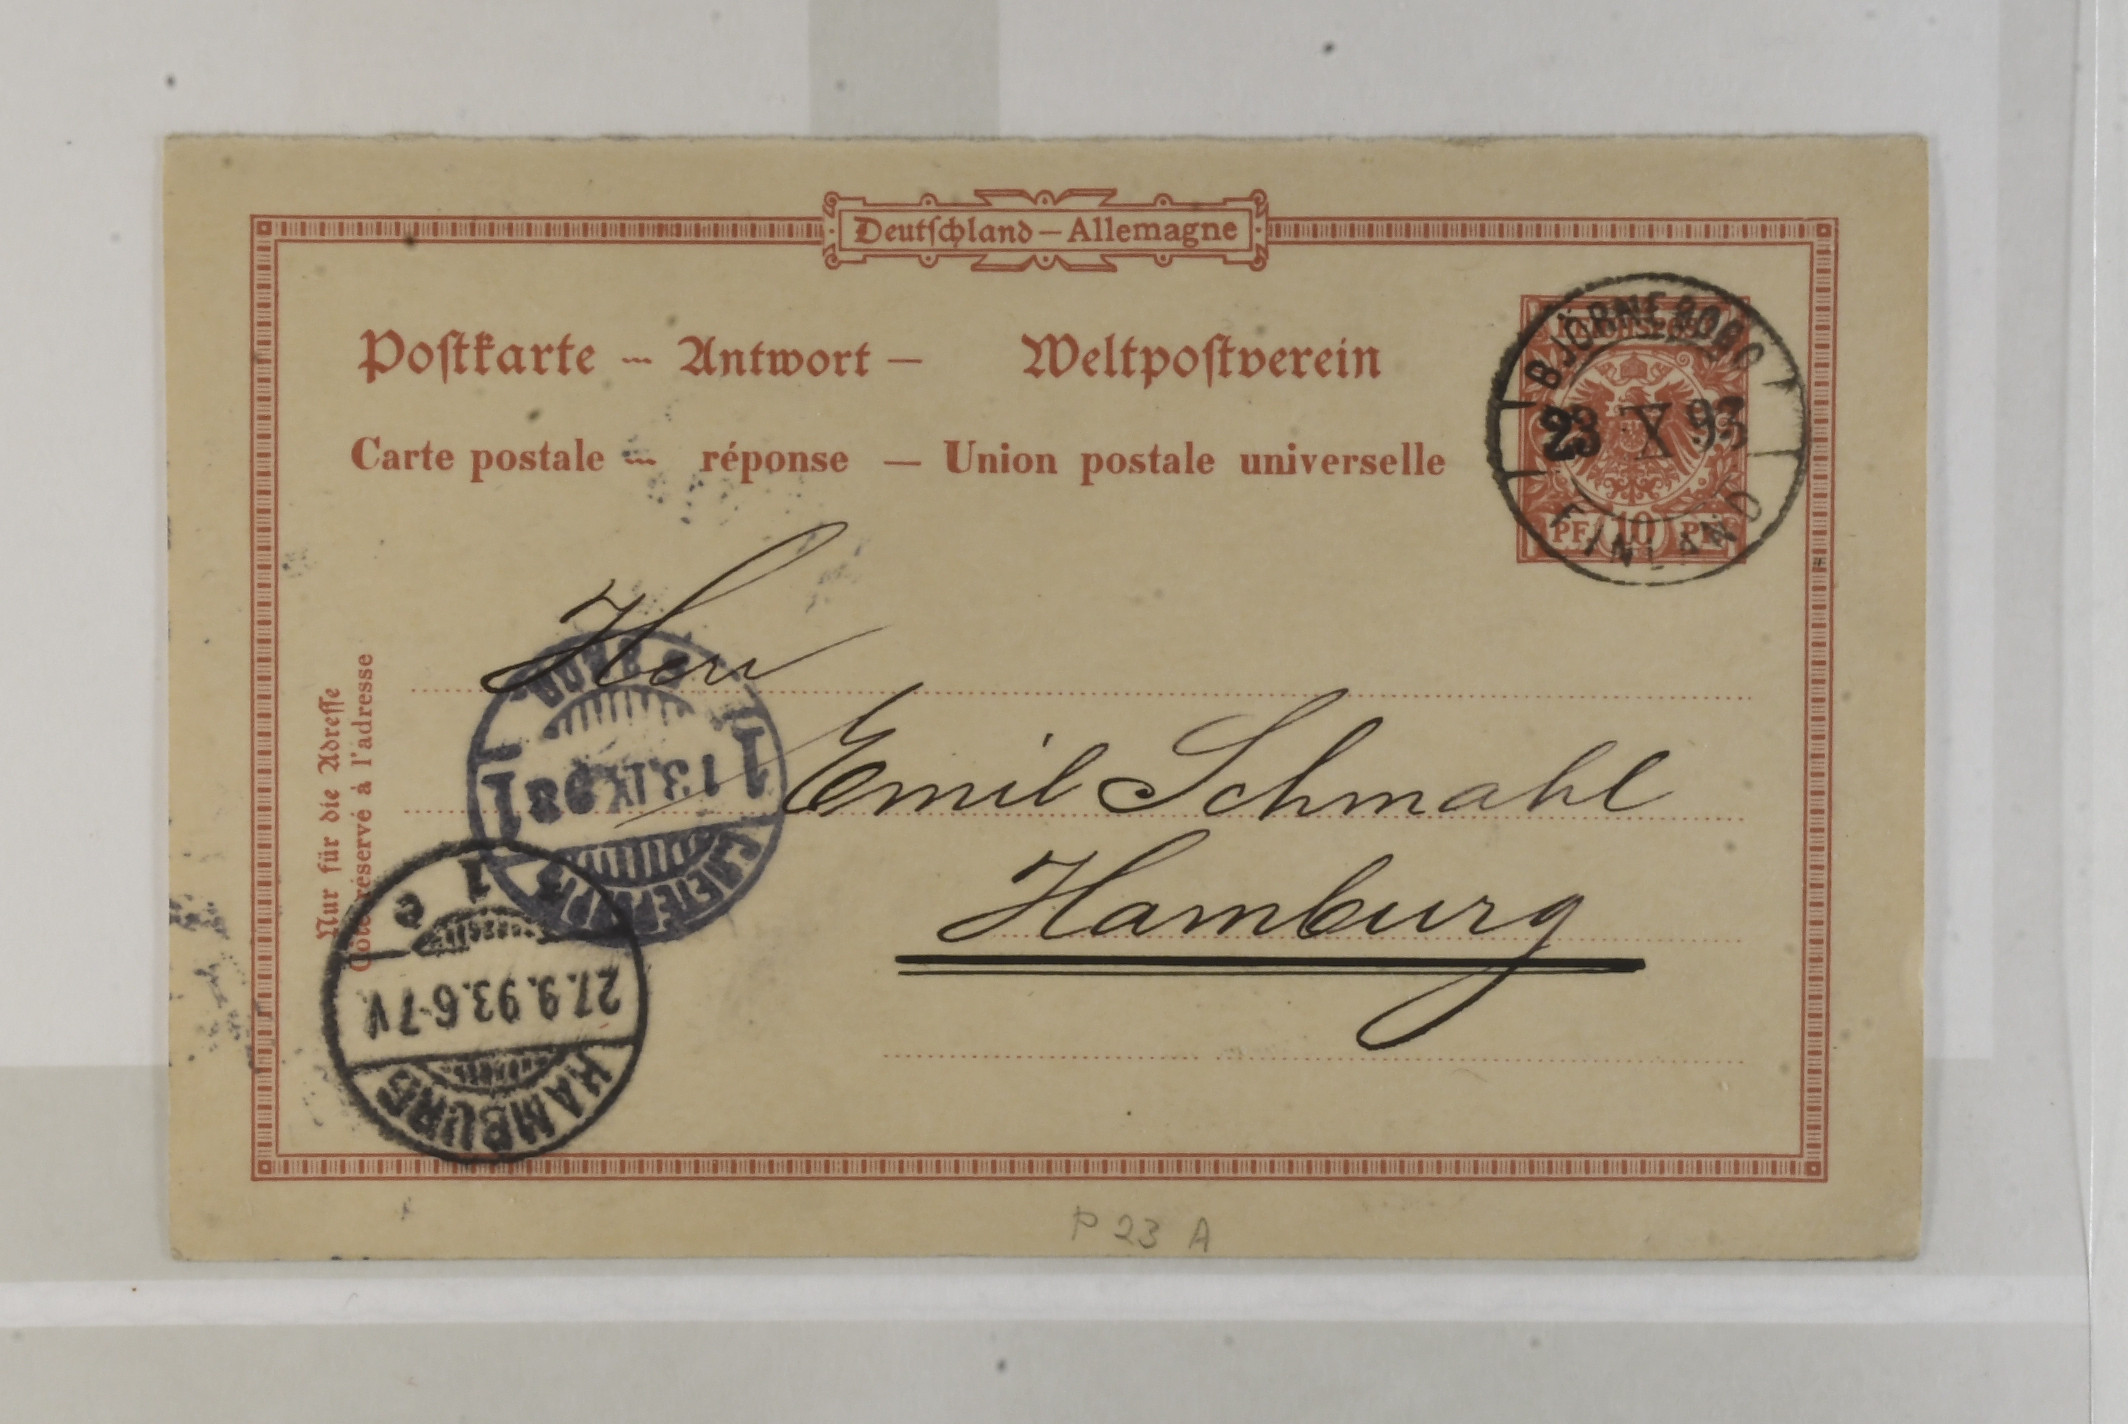 Deutschland — Allemagne
Postkarte — Antwort — Weltpostverein
Carte postale — réponse — Union postale universelle
BJÖRNEBORG
23 X 93
FINLAND
REICHSPOST
PF 10 PF
Nur für die Adresse
Côté réservé à l'adresse
Herr
Emil Schmahl
Hamburg
1 13.IX.93 1
1 e
27.9.93.6-7V.
HAMBURG
P 23 A